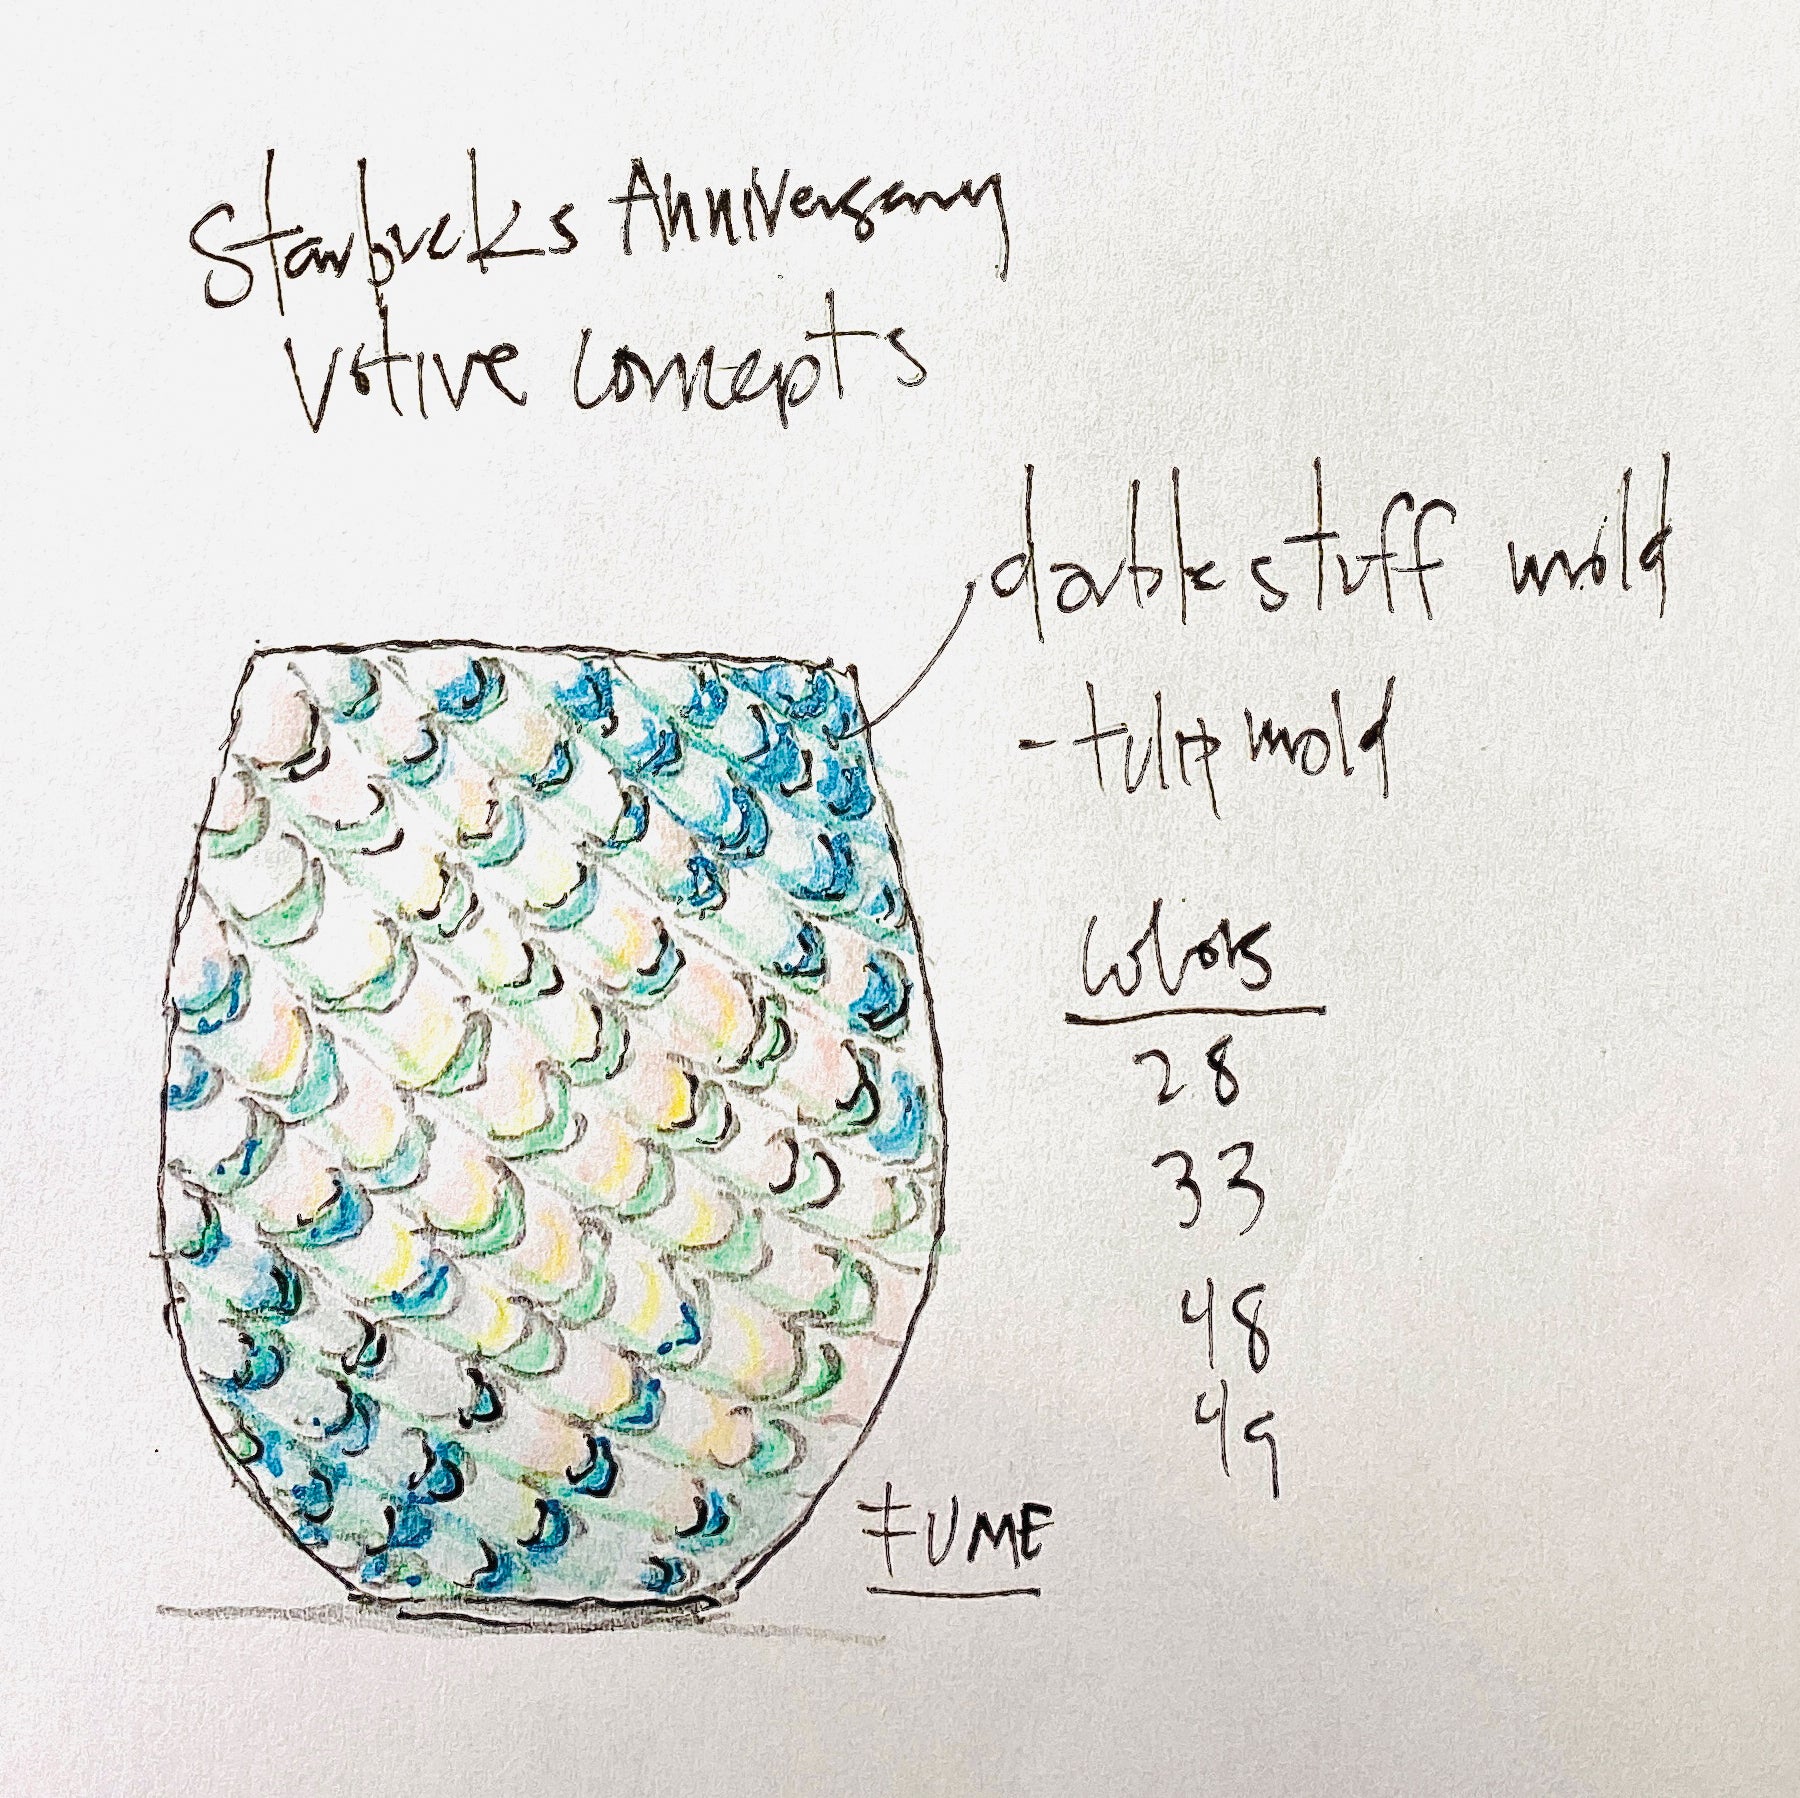 Starbucks Anniversary
Votive Concepts
double stuff mold
- tulip mold
Colors
28
33
48
49
FUME